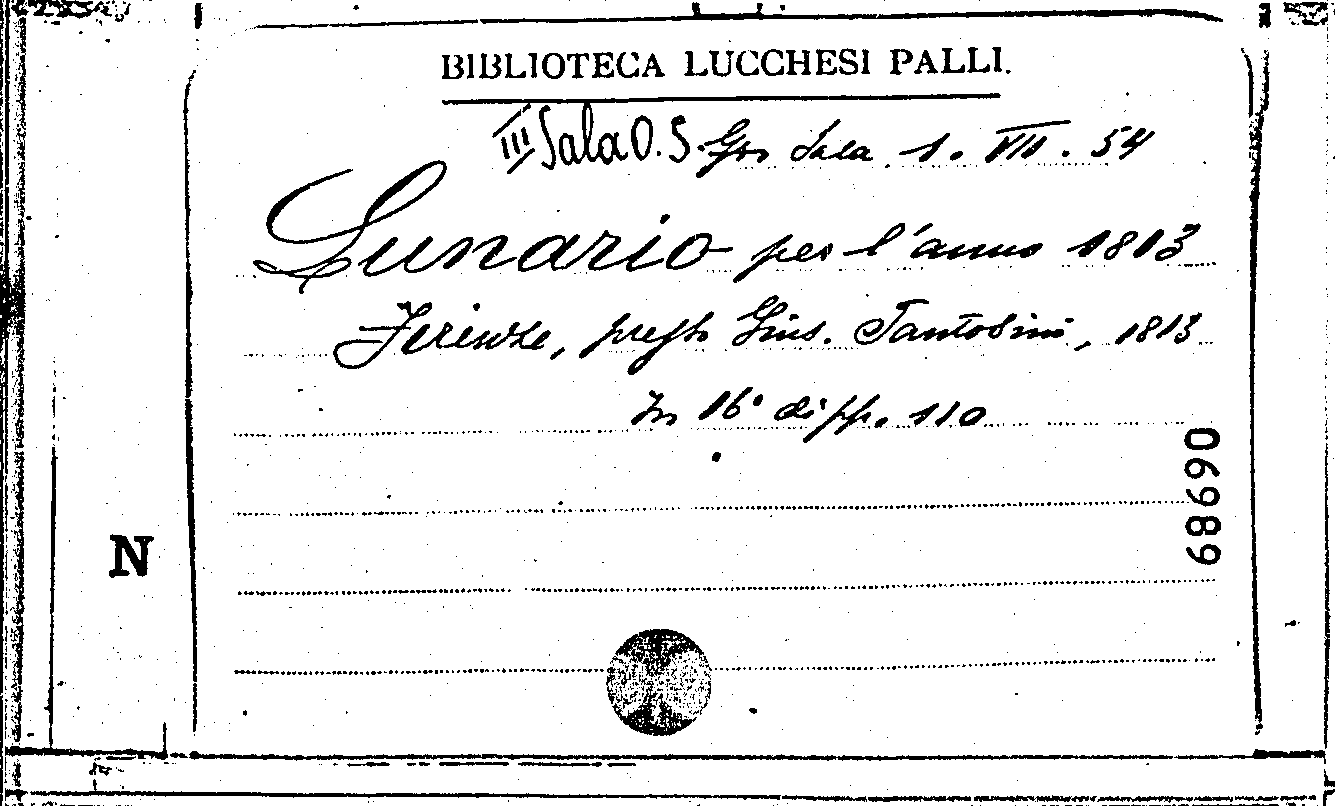 BIBLIOTECA LUCCHESI PALLI.
III Sala O. S. Gr. Sala 1. VIII. 54
Lunario per l'anno 1813
Firenze, presso Gius. Tantosini, 1813
In 16° di pp. 110
68690
N